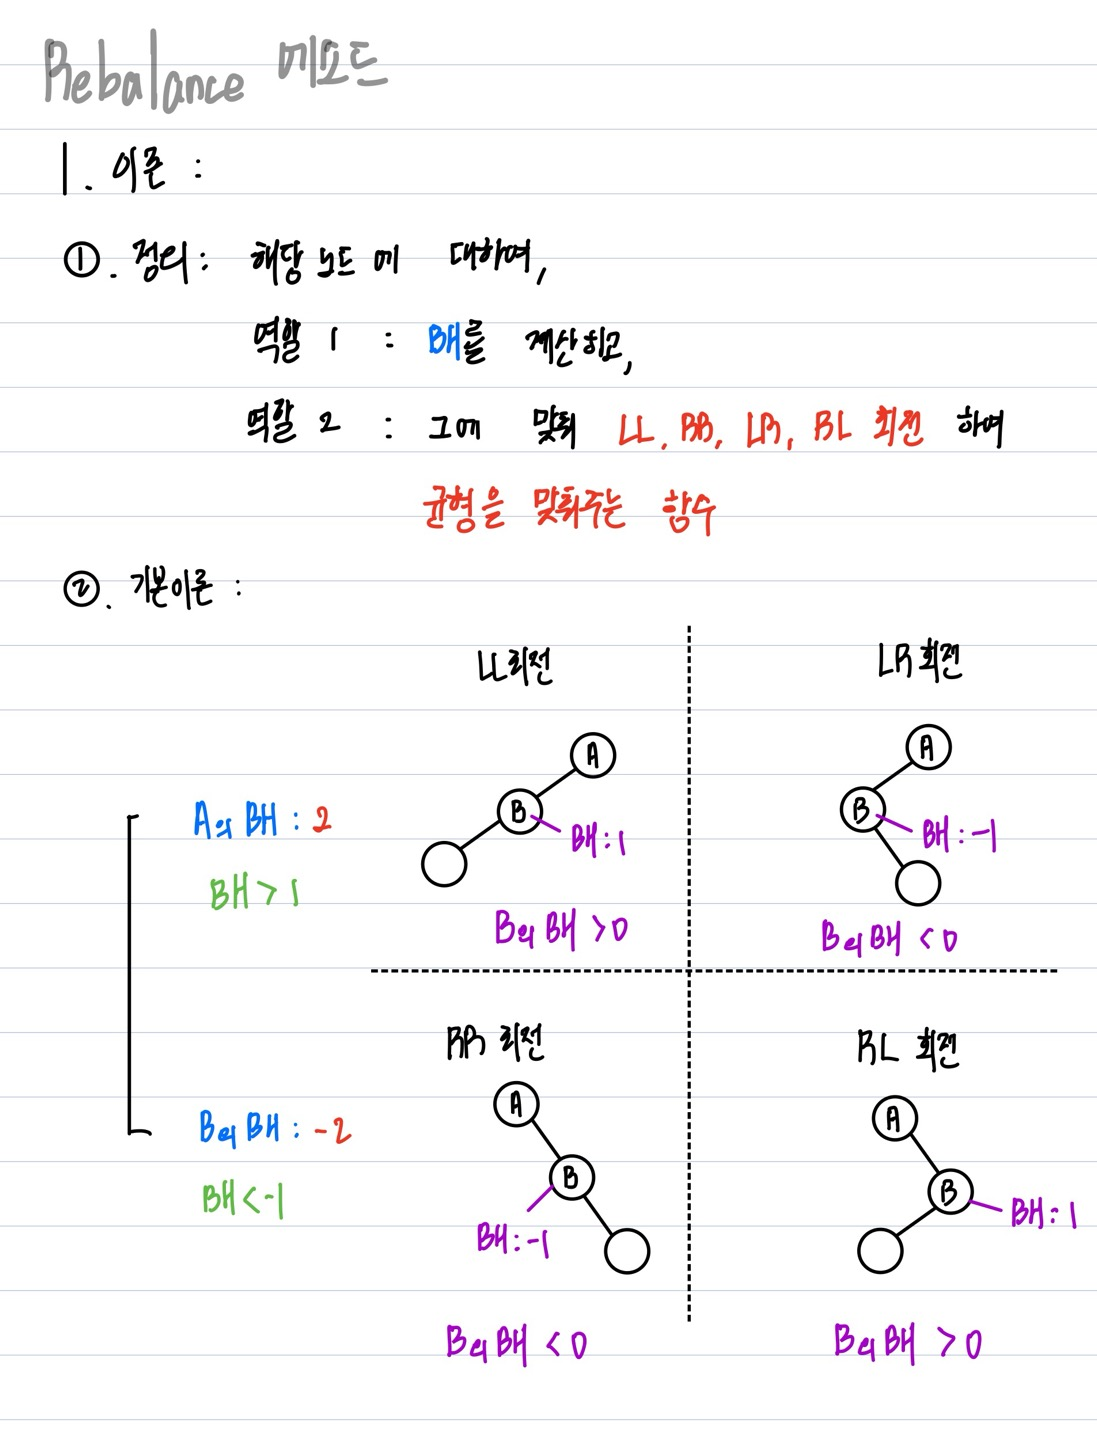 Rebalance 메소드
1. 이론 :
①. 정의 : 해당 노드에 대하여,
역할 1 : BH를 계산하고,
역할 2 : 그에 맞춰 LL, RR, LR, RL 회전 하여
균형을 맞춰주는 함수
②. 기본이론 :
LL회전
LR 회전
A
B
BH : 1
A
B
BH : -1
A의 BH : 2
BH > 1
B의 BH > 0
B의 BH < 0
RR 회전
RL 회전
A
B
BH : -1
A
B
BH : 1
B의 BH : -2
BH < -1
B의 BH < 0
B의 BH > 0